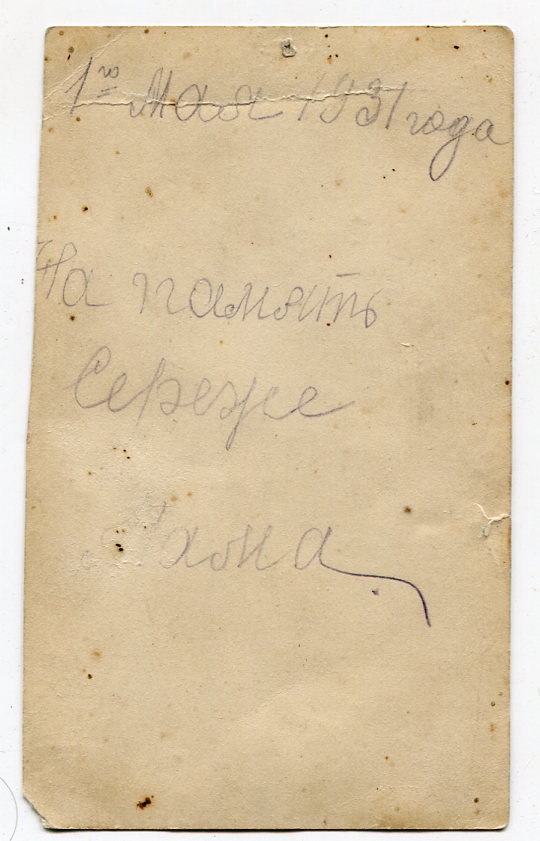 1го Мая 1931 года
На память
Сереже